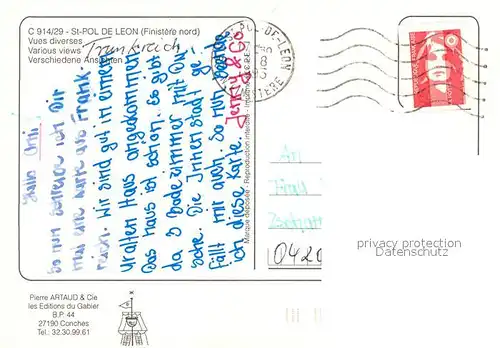 C 914/29 - St-POL DE LEON (Finistère nord)
Vues diverses
Various views
Verschiedene Ansichten
Frankreich
Hallo Omi!
So nun schreibe ich Dir
mal eine Karte aus Frank-
reich. Wir sind gut in einem
uralten Haus angekommen.
Das Haus ist schön. Es gibt
da 3 Badezimmer mit Du-
sche. Die Innenstadt ge-
fällt mir auch. So nun beende
ich diese Karte
Jenny & Co.
Marque déposée - Reproduction interdite
POL-DE-LEON
FINISTERE
An
Frau
0420
privacy protection
Datenschutz
Pierre ARTAUD & Cie
les Editions du Gabier
B.P. 44
27190 Conches
Tel.: 32.30.99.61